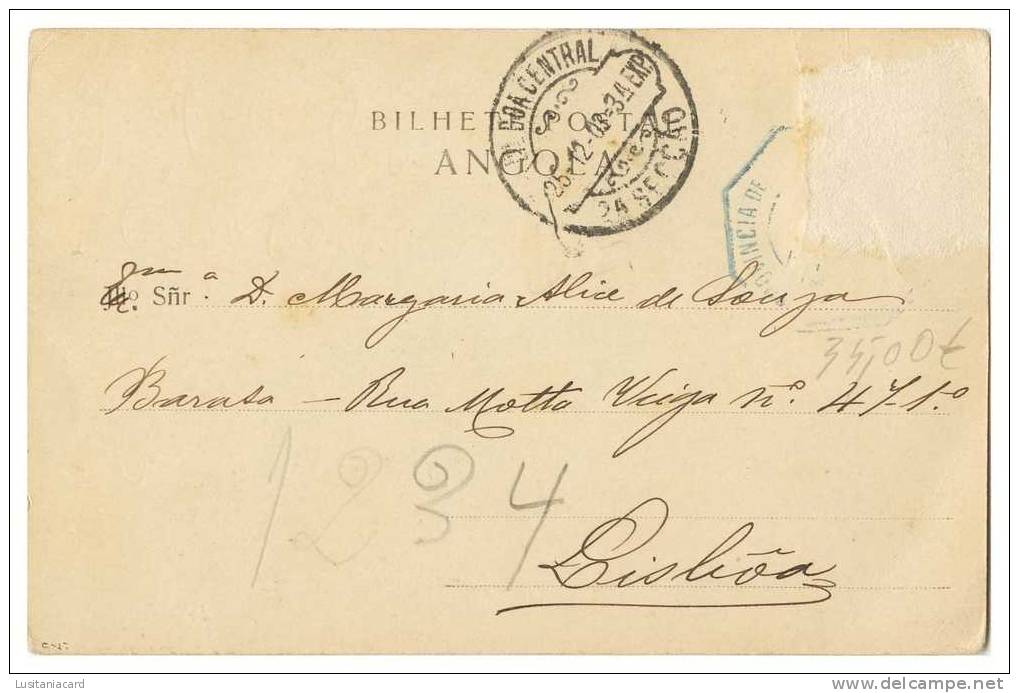 BILHETE POSTAL
ANGOLA
LISBOA CENTRAL
25-12-03-3A EXP.
2A SECÇÃO
INCIA DE
Exm.ª Sñr.ª D. Margaria Alice de Souza
Barata — Rua Motta Veiga nº. 47-1.º
Lisbôa
35,00€
1234
Lusitaniacard
www.delcampe.net